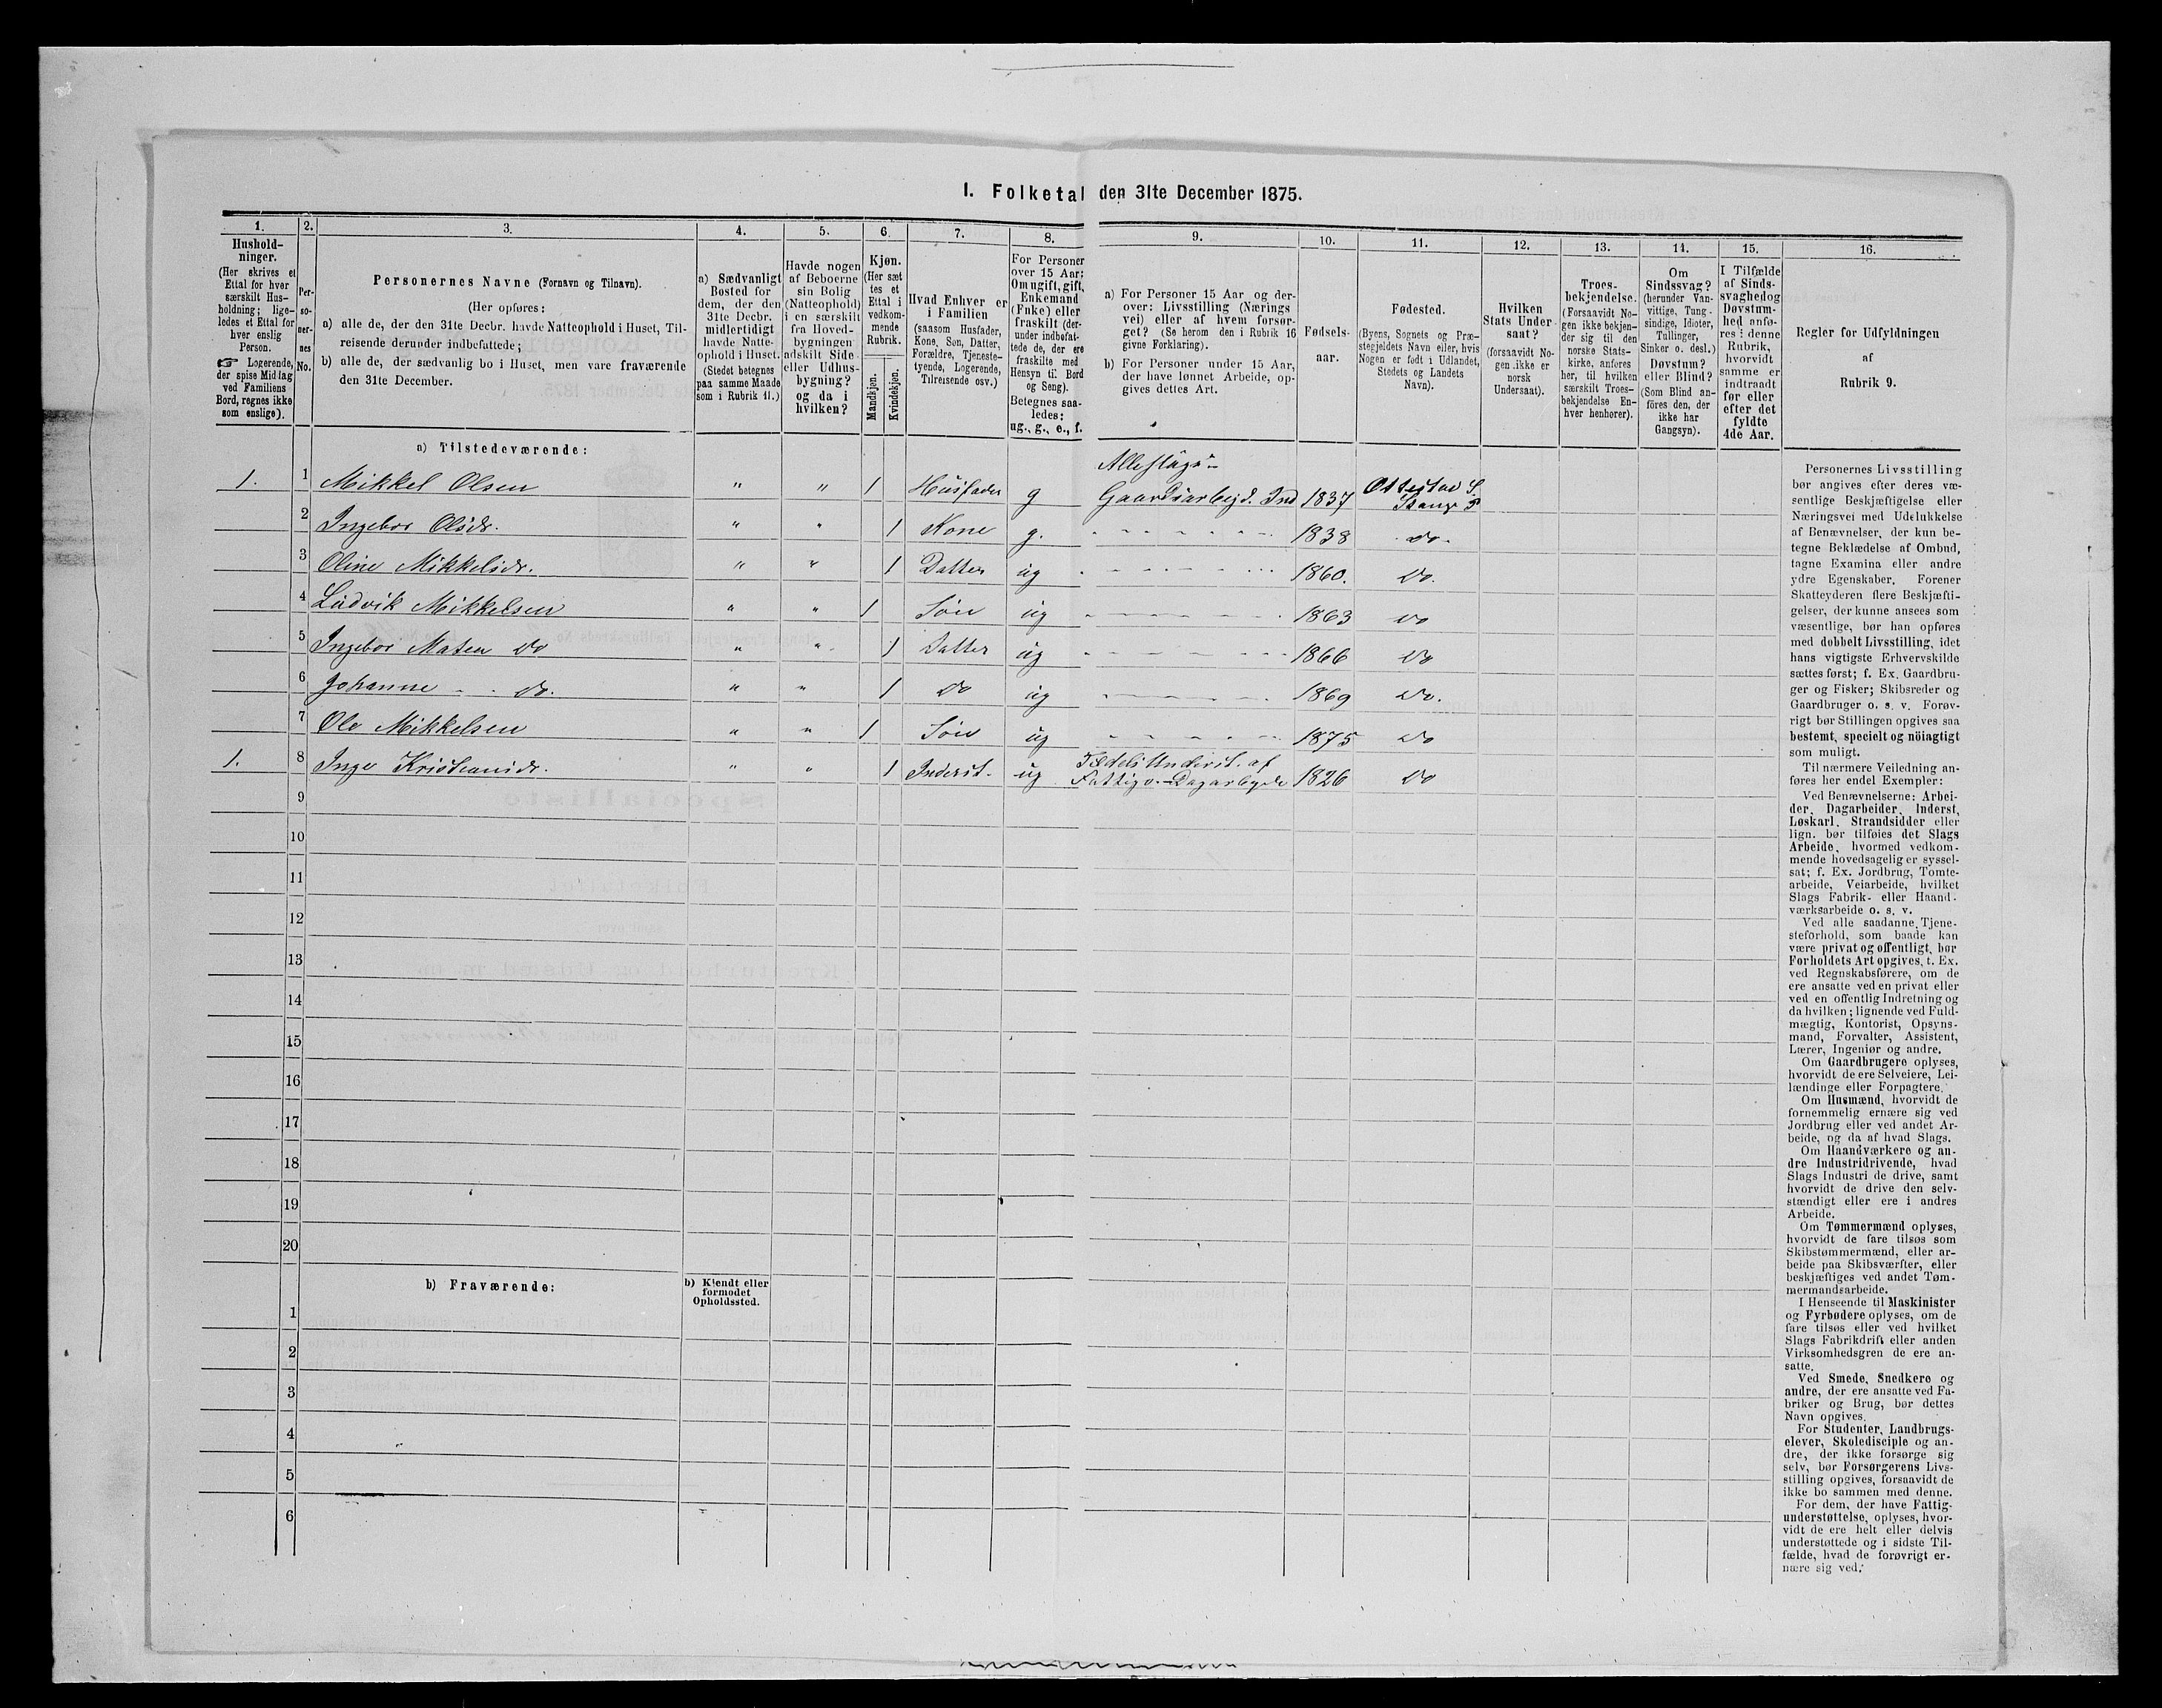 I. Folketal den 31te December 1875.
1. 2. 3. 4. 5. 6. 7. 8. 9. 10. 11. 12. 13. 14. 15. 16.
Hushold-
ninger.
(Her skrives et
Ettal for hver
særskilt Hus-
holdning; lige-
ledes et Ettal for
hver enslig
Person.
☞ Logerende,
der spise Middag
ved Familiens
Bord, regnes ikke
som enslige).
Per-
so-
ner-
nes
No.
Personernes Navne (Fornavn og Tilnavn).
(Her opføres:
a) alle de, der den 31te Decbr. havde Natteophold i Huset, Til-
reisende derunder indbefattede;
b) alle de, der sædvanlig bo i Huset, men vare fraværende
den 31te December.
a) Sædvanligt
Bosted for
dem, der den
31te Decbr.
midlertidigt
havde Natte-
ophold i Huset.
(Stedet betegnes
paa samme Maade
som i Rubrik 11.)
Havde nogen
af Beboerne
sin Bolig
(Natteophold)
i en særskilt
fra Hoved-
bygningen
adskilt Side
eller Udhus-
bygning?
og da i
hvilken?
Kjøn.
(Her sæt
tes et
Ettal i
vedkom-
mende
Rubrik.
Mandkjøn.
Kvindekjøn.
Hvad Enhver er
i Familien
(saasom Husfader,
Kone, Søn, Datter,
Forældre, Tjeneste-
tyende, Logerende,
Tilreisende osv.)
For Personer
over 15 Aar:
Om ugift, gift,
Enkemand
(Enke) eller
fraskilt (der-
under indbefat-
tede de, der ere
fraskilte med
Hensyn til Bord
og Seng).
Betegnes saa-
ledes:
ug., g., e., f.
a) For Personer 15 Aar og der-
over: Livsstilling (Nærings
vei) eller af hvem forsør-
get? (Se herom den i Rubrik 16
givne Forklaring).
b) For Personer under 15 Aar,
der have lønnet Arbeide, op-
gives dettes Art.
Fødsels-
aar.
Fødested.
(Byens, Sognets og Præ-
stegjeldets Navn eller, hvis
Nogen er født i Udlandet,
Stedets og Landets
Navn).
Hvilken
Stats Under-
saat?
(forsaavidt No-
gen ikke er
norsk
Undersaat).
Troes-
bekjendelse.
(Forsaavidt No-
gen ikke bekjen-
der sig til den
norske Stats-
kirke, anføres
her, til hvilken
særskilt Troes-
bekjendelse En-
hver henhører).
Om
Sindssvag?
(herunder Van-
vittige, Tung-
sindige, Idioter,
Tullinger,
Sinker o. desl.)
Døvstum?
eller Blind?
(Som Blind an-
føres den, der
ikke har
Gangsyn).
I Tilfælde
af Sinds-
svaghed og
Døvstum-
hed anfø-
res i denne
Rubrik,
hvorvidt
samme er
indtraadt
før eller
efter det
fyldte
4de Aar.
Regler for Udfyldningen
af
Rubrik 9.
a) Tilstedeværende:
Alleslags
1. 1 Mikkel Olsen " " 1 Husfader g Gaardsarbejd. Ind 1837 Ottestad S. Stange P
2 Ingebor Olsdr. " " 1 Kone g. 1838 do.
3 Oline Mikkelsdr. " " 1 Datter ug 1860. do.
4 Ludvik Mikkelsen " " 1 Søn ug 1863 do
5 Ingebor Maten do " " 1 Datter ug 1866 do
6 Johanne do. " " 1 do ug 1869 do.
7 Ole Mikkelsen " " 1 Søn ug 1875 do
1. 8 Inger Kristiansdr. " " 1 Inderst. ug Underst. af Fattigv. Dagarbejde 1826 do
9
10
11
12
13
14
15
16
17
18
19
20
b) Fraværende:
b) Kjendt eller
formodet
Opholdssted.
1
2
3
4
5
6
Personernes Livsstilling
bør angives efter deres væ-
sentlige Beskjæftigelse eller
Næringsvei med Udelukkelse
af Benævnelser, der kun be-
tegne Beklædelse af Ombud,
tagne Examina eller andre
ydre Egenskaber. Forener
Skatteyderen flere Beskjæfti-
gelser, der kunne ansees som
væsentlige, bør han opføres
med dobbelt Livsstilling, idet
hans vigtigste Erhvervskilde
sættes først; f. Ex. Gaardbru-
ger og Fisker; Skibsreder og
Gaardbruger o. s. v. Forøv-
rigt bør Stillingen opgives saa
bestemt, specielt og nøiagtigt
som muligt.
Til nærmere Veiledning an-
føres her endel Exempler:
Ved Benævnelserne: Arbei-
der, Dagarbeider, Inderst,
Løskarl, Strandsidder eller
lign. bør tilføies det Slags
Arbeide, hvormed vedkom-
mende hovedsagelig er syssel-
sat; f. Ex. Jordbrug, Tomte-
arbeide, Veiarbeide, hvilket
Slags Fabrik- eller Haand-
værksarbeide o. s. v.
Ved alle saadanne Tjene-
steforhold, som baade kan
være privat og offentligt, bør
Forholdets Art opgives, f. Ex.
ved Regnskabsførere, om de
ere ansatte ved en privat eller
ved en offentlig Indretning og
da hvilken; lignende ved Fuld-
mægtig, Kontorist, Opsyns-
mand, Forvalter, Assistent,
Lærer, Ingeniør og andre.
Om Gaardbrugere oplyses,
hvorvidt de ere Selveiere, Lei-
lændinge eller Forpagtere.
Om Husmænd, hvorvidt de
fornemmelig ernære sig ved
Jordbrug eller ved andet Ar-
beide, og da af hvad Slags.
Om Haandværkere og an-
dre Industridrivende, hvad
Slags Industri de drive, samt
hvorvidt de drive den selv-
stændigt eller ere i andres
Arbeide.
Om Tømmermænd oplyses,
hvorvidt de fare tilsøs som
Skibstømmermænd, eller ar-
beide paa Skibsværfter, eller
beskjæftiges ved andet Tøm-
mermandsarbeide.
I Henseende til Maskinister
og Fyrbødere oplyses, om de
fare tilsøs eller ved hvilket
Slags Fabrikdrift eller anden
Virksomhedsgren de ere an-
satte.
Ved Smede, Snedkere og
andre, der ere ansatte ved Fa-
briker og Brug, bør dettes
Navn opgives.
For Studenter, Landbrugs-
elever, Skoledisciple og an-
dre, der ikke forsørge sig
selv, bør Forsørgerens Livs-
stilling opgives, forsaavidt de
ikke bo sammen med denne.
For dem, der have Fattig-
understøttelse, oplyses, hvor-
vidt de ere helt eller delvis
understøttede og i sidste Til-
fælde, hvad de forøvrigt er-
nære sig ved.